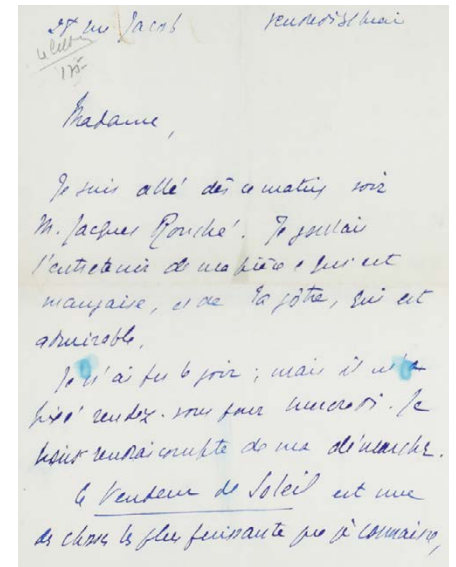 27 rue Jacob vendredi 31 mai
175-
Madame,
Je suis allé dès ce matin voir
M. Jacques Rouché. Je voulais
l'entretenir de ma pièce, qui est
mauvaise, et de la vôtre, qui est
admirable.
Je n'ai pu le voir ; mais il m'a
fixé rendez-vous pour mercredi. Je
vous rendrai compte de ma démarche.
Le Vendeur de Soleil est une
des choses les plus puissante que je connaisse,